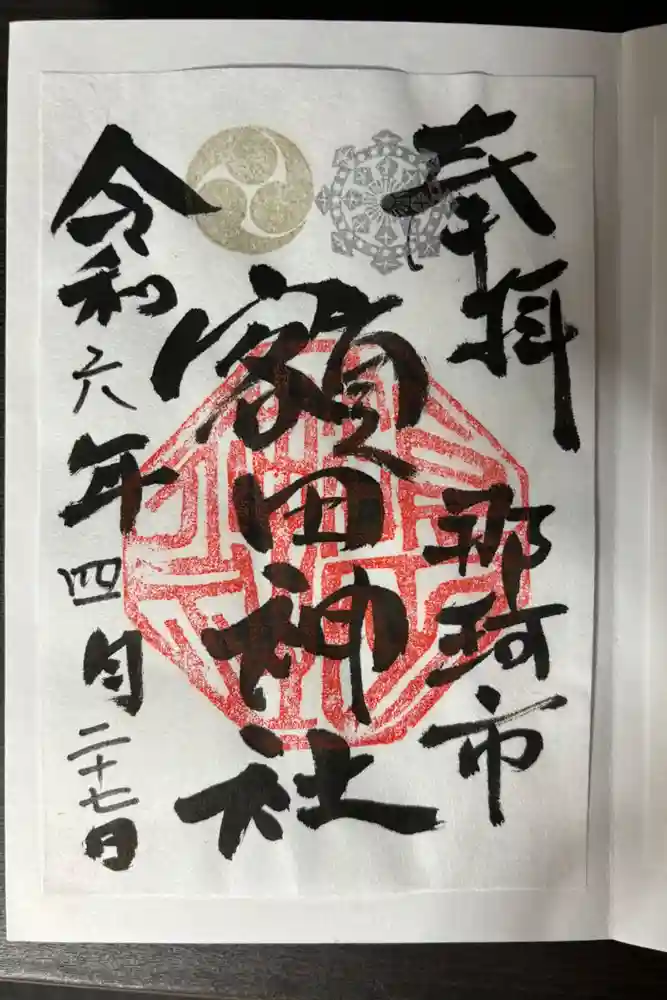 奉拝
那珂市
額田神社
令和六年四月二十七日